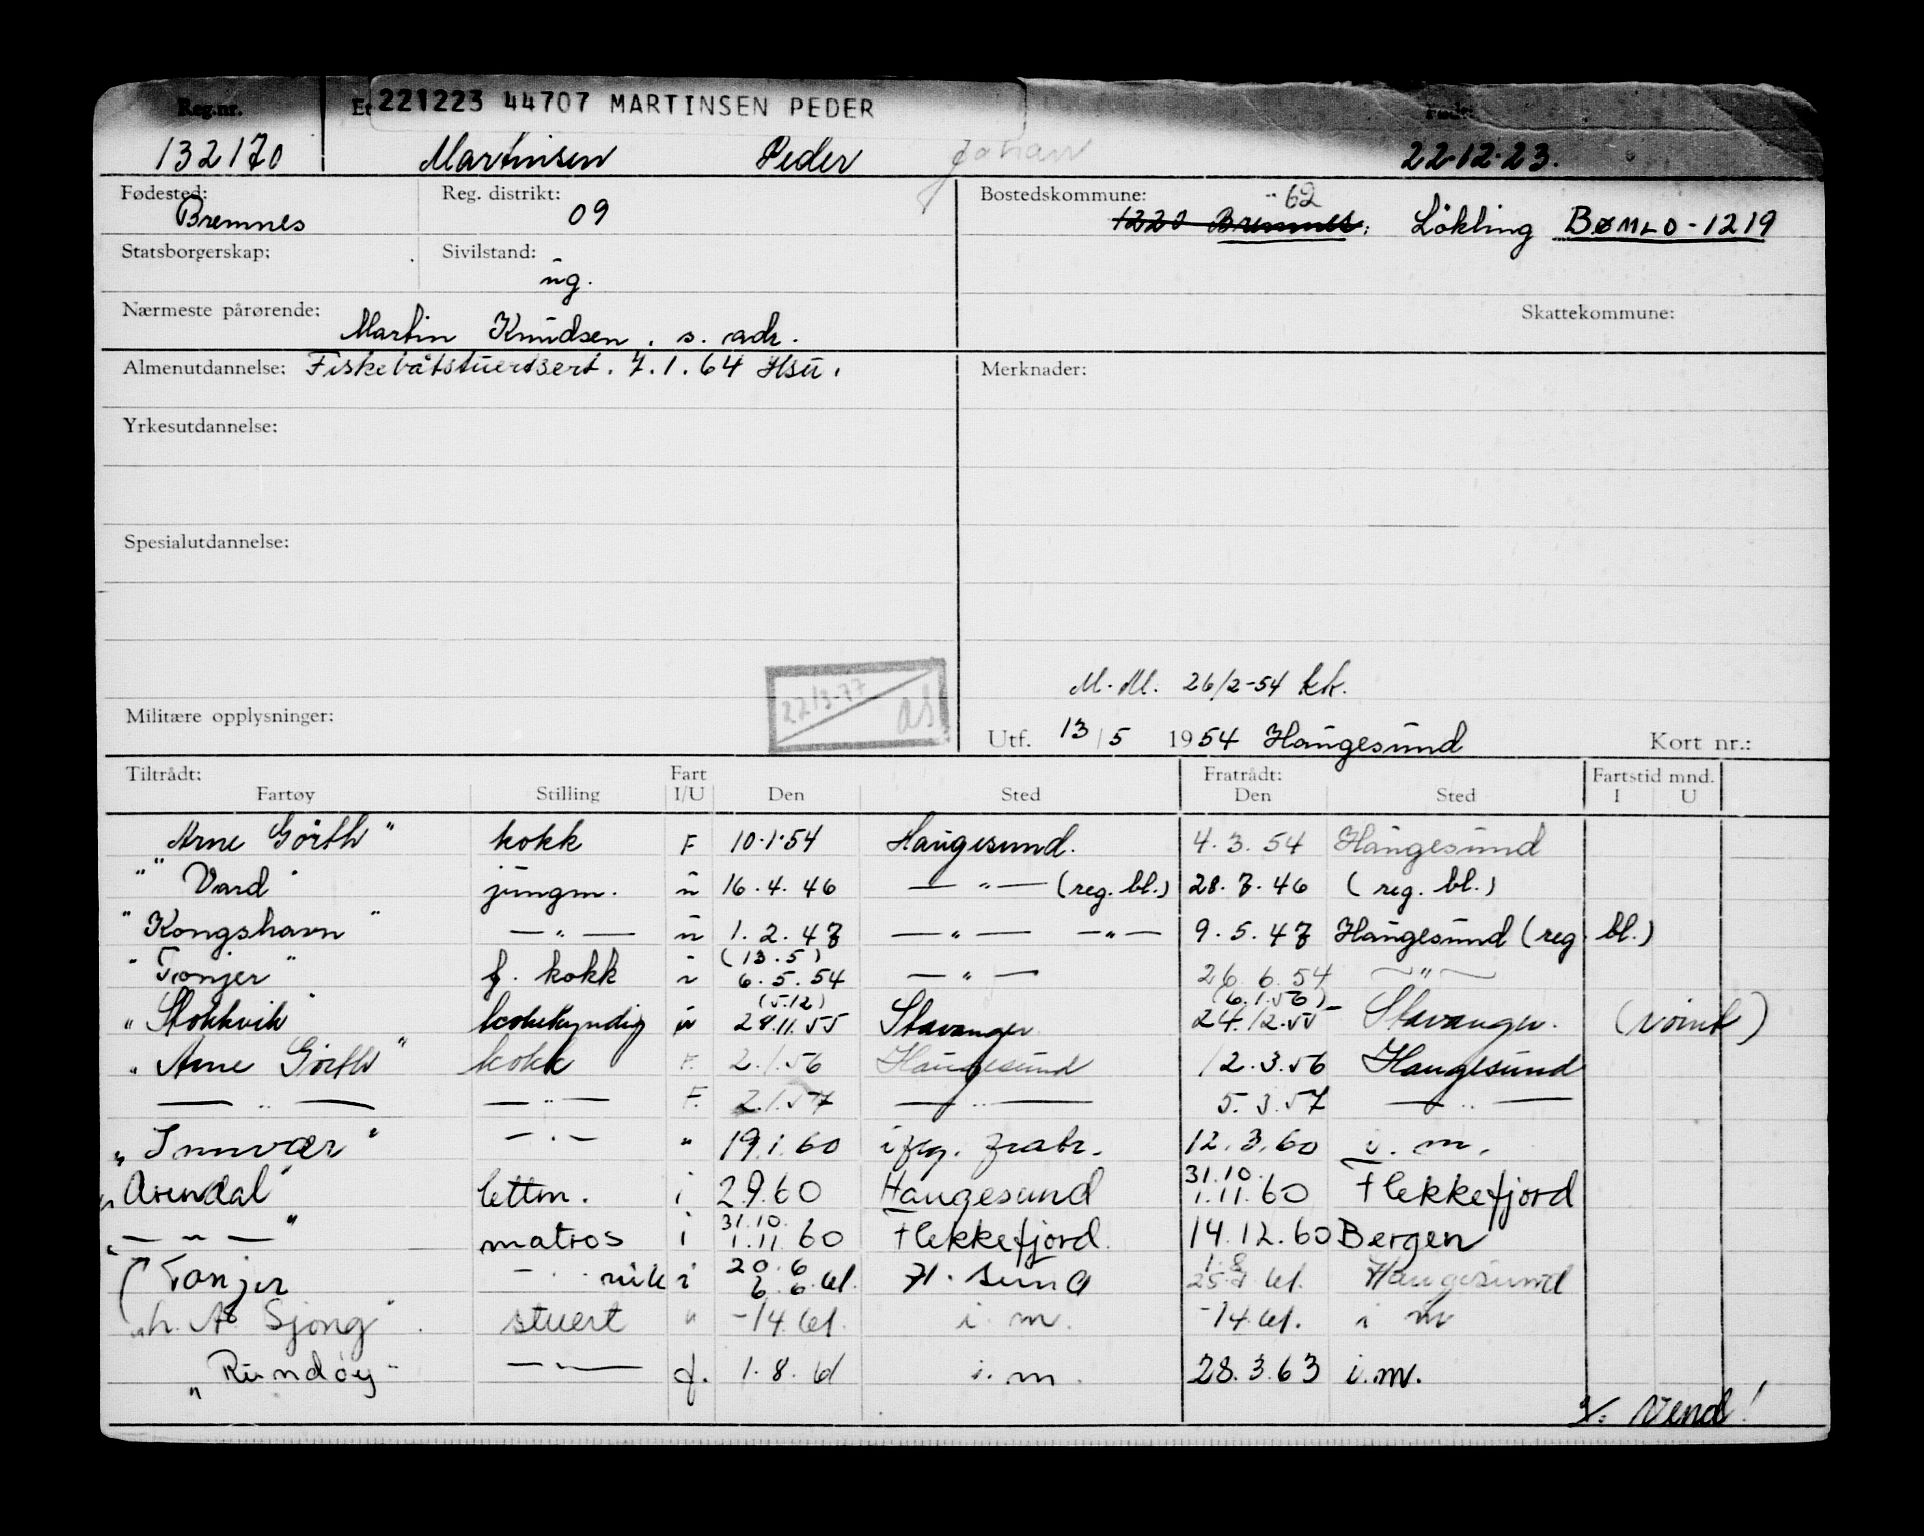 Reg.nr. 221223 44707 MARTINSEN PEDER Født:
132170 Martinsen Peder Johan 22.12.23.
Fødested: Bremnes Reg. distrikt: 09 Bostedskommune: 62
1220 Bremnes; Lökling BØMLO - 1219
Statsborgerskap: Sivilstand: ug.
Nærmeste pårørende: Martin Knudsen, s. adr. Skattekommune:
Almenutdannelse: Fiskebåtstuertsert. 7.1.64 Hsu. Merknader:
Yrkesutdannelse:
Spesialutdannelse:
22/3-77 as
M.M. 26/2-54 kk.
Militære opplysninger: Utf. 13/5 1954 Haugesund Kort nr.:
Tiltrådt: Fart Fratrådt: Fartstid mnd.
Fartøy Stilling I/U Den Sted Den Sted I U
Arne Görth" kokk F 10.1.54 Haugesund. 4.3.54 Haugesund
" Vard " jungm. u 16.4.46 — " — (reg. bl.) 28.7.46 (reg. bl.)
" Kongshavn " — " — u 1.2.47 — " — — " — 9.5.47 Haugesund (reg. bl.)
(13.5)
" Tonjer " f. kokk i 6.5.54 — " — 26.6.54 — " —
(5.12) (6.1.56)
" Stokkvik " kokekyndig u 28.11.55 Stavanger 24.12.55 Stavanger.
" Arne Görth " kokk F. 2.1.56 Haugesund 12.3.56 Haugesund
— " — — " — F. 2.1.57 — " — 5.3.57 — " —
" Innvær " — " — " 19.1.60 12.3.60 i.m.
31.10.
" Arendal " lettm. i 2.9.60 Haugesund 1.11.60 Flekkefjord
31.10.
" — " — " matros i 1.11.60 Flekkefjord. 14.12.60 Bergen
20.6 1.8
Tonjer — " — i 6.6.61. H.sund 25.7.61. Haugesund
Sjong " stuert " -14.61. i.m. -14.61. i m
" Rundøy " — " — f. 1.8.61 i.m. 28.3.63 i.m.
V. Vend!